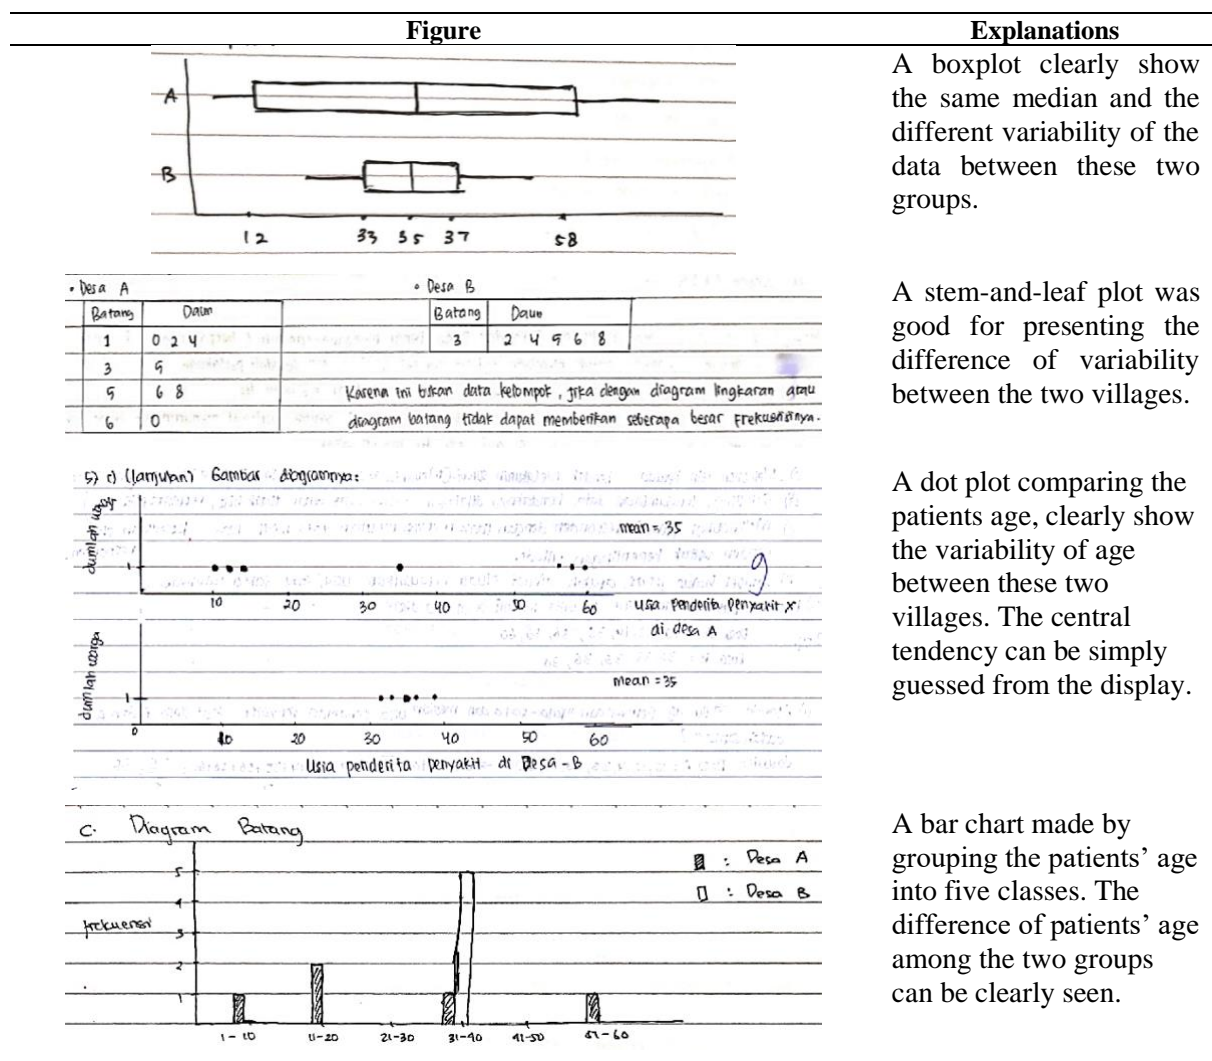 Figure Explanations
A
B
12 33 35 37 58
A boxplot clearly show
the same median and the
different variability of the
data between these two
groups.
• Desa A
Batang Daun
1 0 2 4
3 5
5 6 8
6 0
• Desa B
Batang Daun
3 2 4 5 6 8
Karena ini bukan data kelompok, jika dengan diagram lingkaran atau
diagram batang tidak dapat memberikan seberapa besar frekuensinya.
A stem-and-leaf plot was
good for presenting the
difference of variability
between the two villages.
5) c) (lanjutan) Gambar diagramnya:
Jumlah warga
mean = 35
1
10 20 30 40 50 60 usia penderita penyakit x
di desa A
Jumlah warga
mean = 35
1
0 10 20 30 40 50 60
Usia penderita penyakit di Desa - B
A dot plot comparing the
patients age, clearly show
the variability of age
between these two
villages. The central
tendency can be simply
guessed from the display.
C. Diagram Batang
: Desa A
: Desa B
frekuensi
5
4
3
2
1
1 - 10 11-20 21-30 31-40 41-50 51-60
A bar chart made by
grouping the patients' age
into five classes. The
difference of patients' age
among the two groups
can be clearly seen.